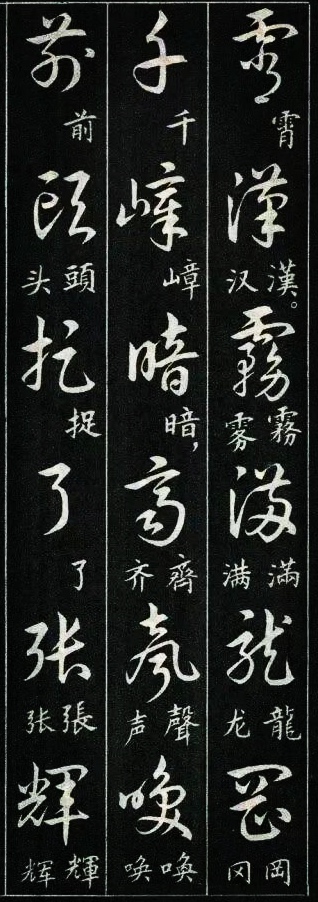 霄 霄 漢 漢。 汉 霧 霧 雾 滿 滿 满 龍 龍 龙 岡 岡 冈
千 千 嶂 嶂 暗 暗， 齊 齊 齐 聲 聲 声 喚 喚 唤
前 前 頭 頭 头 捉 捉 了 了 張 張 张 輝 輝 辉